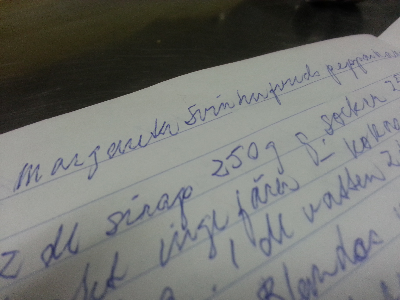 Margareta Svinhufvuds pepparkakor
2 dl sirap 250 g socker 25
ingefära kokas
1 dl vatten 2
Blandas